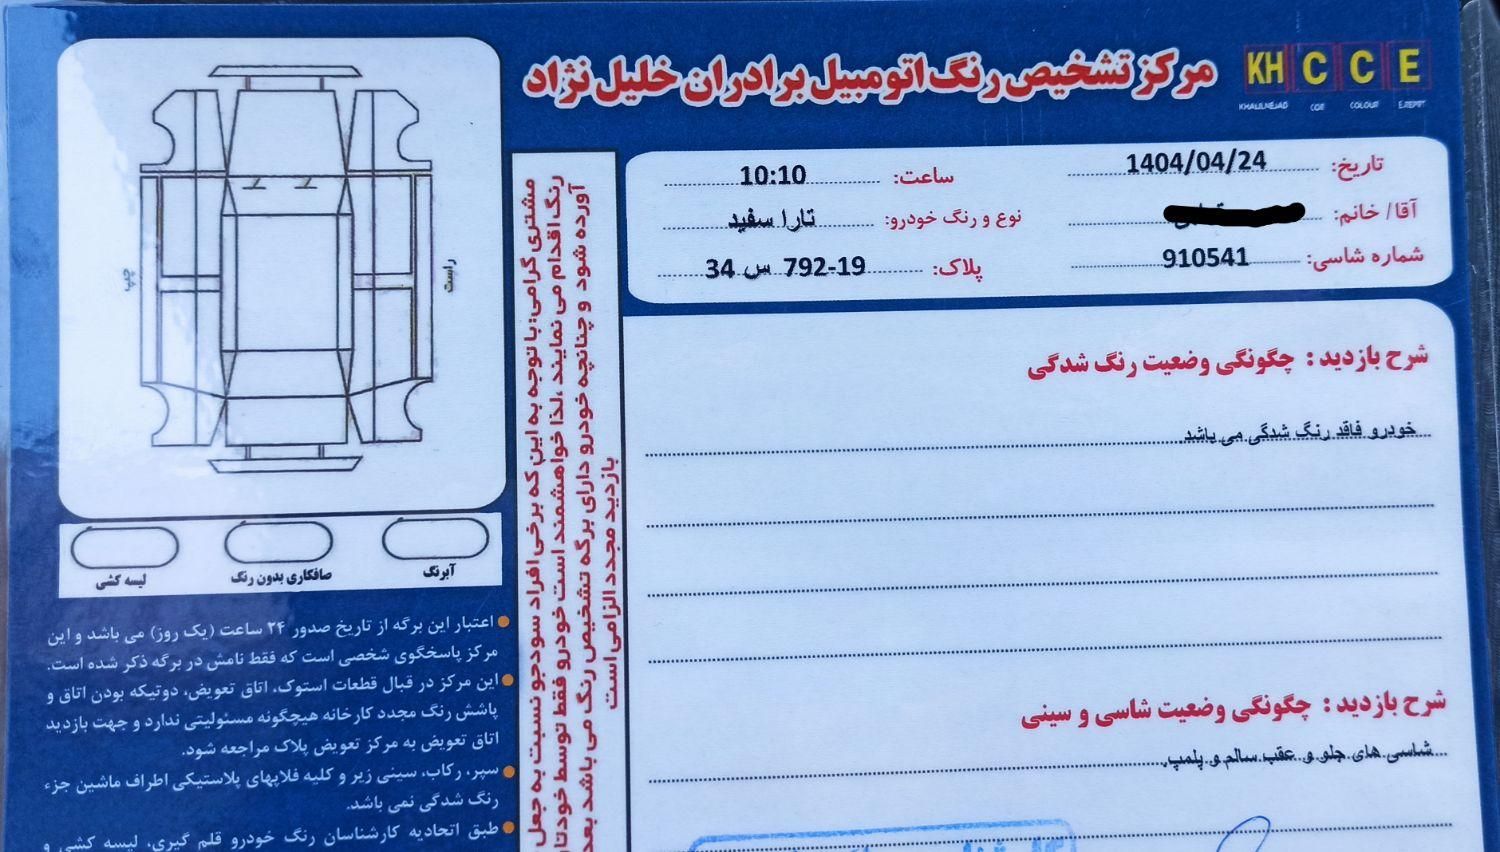 مرکز تشخیص رنگ اتومبیل برادران خلیل نژاد
KH C C E
KHALILNEJAD CAR COLOUR EXPERT
تاریخ: 1404/04/24 ساعت: 10:10
آقا/ خانم: نوع و رنگ خودرو: تارا سفید
شماره شاسی: 910541 پلاک: 792-19 س 34
شرح بازدید : چگونگی وضعیت رنگ شدگی
خودرو فاقد رنگ شدگی می باشد
شرح بازدید : چگونگی وضعیت شاسی و سینی
شاسی های جلو و عقب سالم و پلمپ.
مشتری گرامی: با توجه به این که برخی افراد سودجو نسبت به جعل
رنگ اقدام می نمایند ،لذا خواهشمند است خودرو فقط توسط خودتا
آورده شود و چنانچه خودرو دارای برگه تشخیص رنگ می باشد بعد
بازدید مجدد الزامی است
راست
چپ
آبرنگ
صافکاری بدون رنگ
لیسه کشی
اعتبار این برگه از تاریخ صدور ۲۴ ساعت (یک روز) می باشد و این
مرکز پاسخگوی شخصی است که فقط نامش در برگه ذکر شده است.
این مرکز در قبال قطعات استوک، اتاق تعویض، دوتیکه بودن اتاق و
پاشش رنگ مجدد کارخانه هیچگونه مسئولیتی ندارد و جهت بازدید
اتاق تعویض به مرکز تعویض پلاک مراجعه شود.
سپر، رکاب، سینی زیر و کلیه فلاپهای پلاستیکی اطراف ماشین جزء
رنگ شدگی نمی باشد.
طبق اتحادیه کارشناسان رنگ خودرو قلم گیری، لیسه کشی و